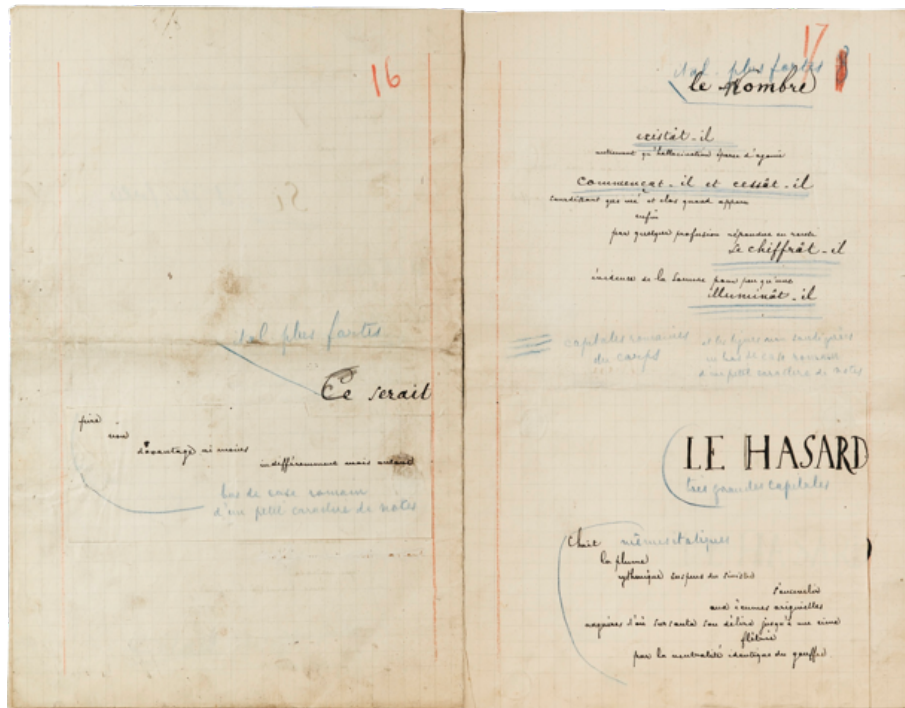 16
ital. plus fortes
Ce serait
pire
non
davantage ni moins
indifféremment mais autant
bas de casse romain
d'un petit caractère de notes
17
ital. plus fortes
le Nombre
existât-il
autrement qu'hallucination éparse d'agonie
commençât-il et cessât-il
sourdant que nié et clos quand apparu
enfin
par quelque profusion répandue en rareté
Se chiffrât-il
évidence de la somme pour peu qu'une
illuminât-il
capitales romaines
du corps
et les lignes aux
en bas de casse romain
d'un petit caractère de notes
LE HASARD
très grandes capitales
Choit
mêmes italiques
la plume
rythmique suspens du sinistre
s'ensevelir
aux écumes originelles
naguères d'où sursauta son délire jusqu'à une cime
flétrie
par la neutralité identique du gouffre